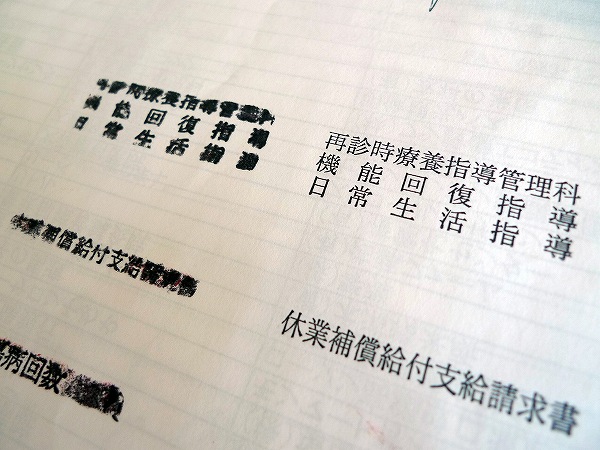 診時療養指導管理
機能回復指導
日常生活指導
再診時療養指導管理科
機能回復指導
日常生活指導
業補償給付支給
休業補償給付支給請求書
病回数